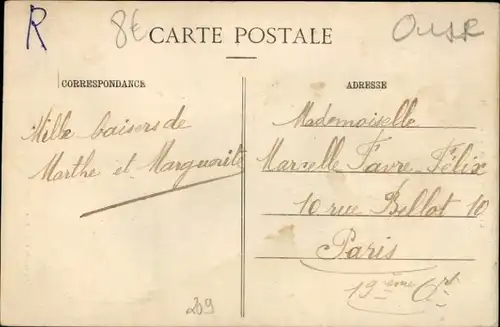 R
8€
Ouse
CARTE POSTALE
CORRESPONDANCE
ADRESSE
Mille baisers de
Marthe et Marguerite
Mademoiselle
Marcelle Favre-Félix
10 rue Bellot 10
Paris
19ème Art
209